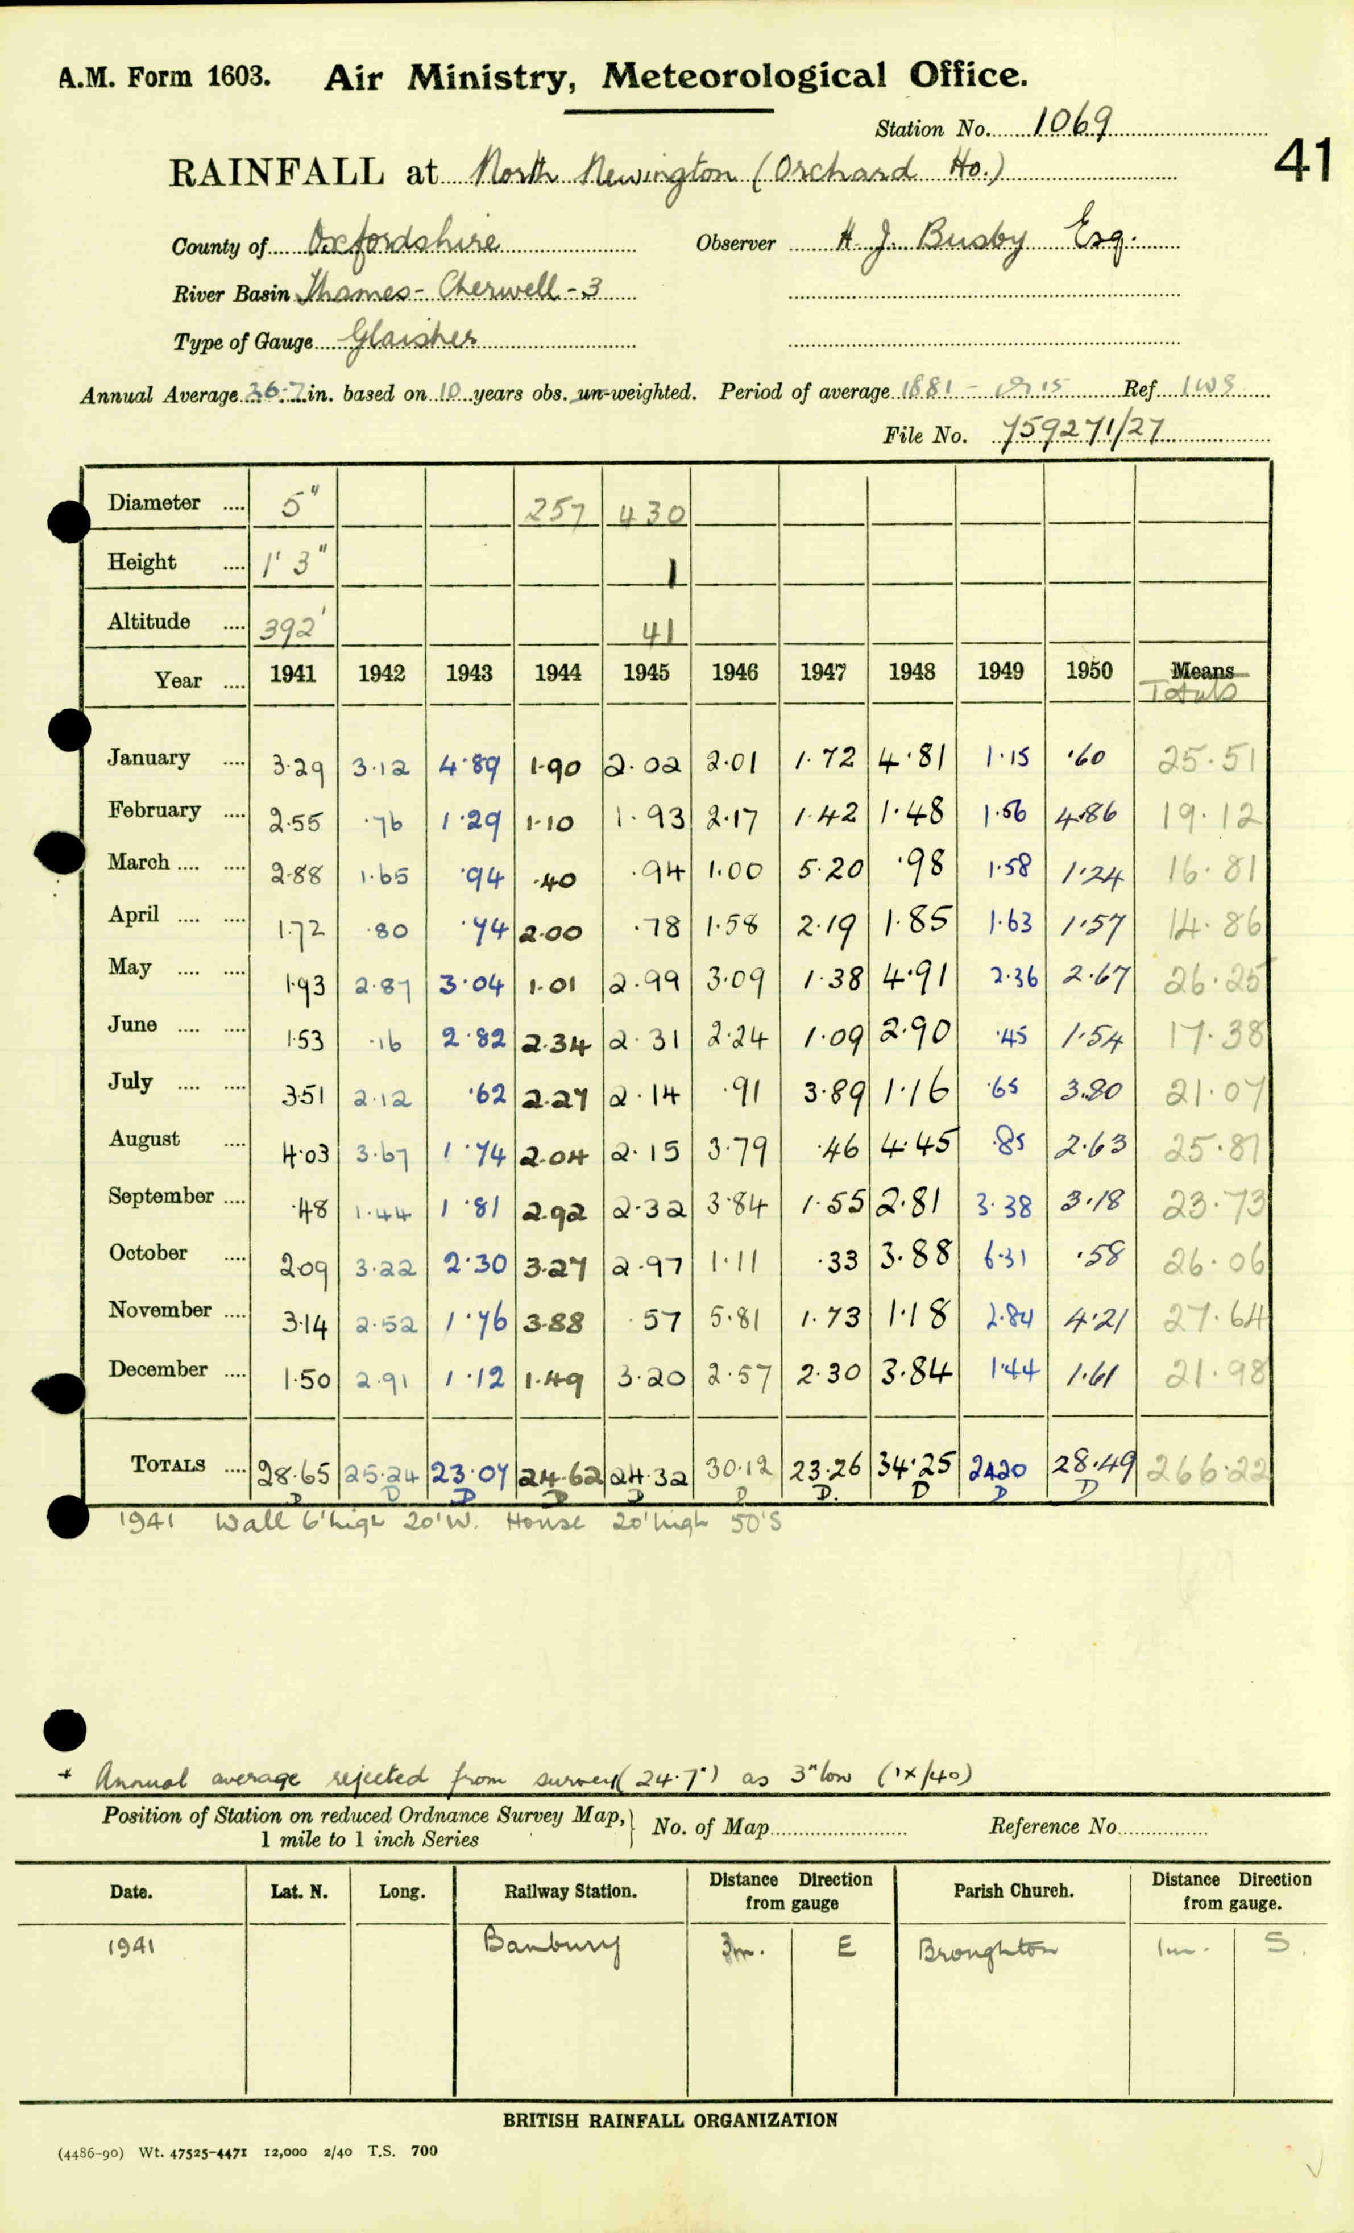 A.M. Form 1603. Air Ministry, Meteorological Office.
Station No. 1069
41
RAINFALL at North Newington (Orchard Ho.)
County of Oxfordshire Observer H. J. Busby Esq.
River Basin Thames - Cherwell - 3
Type of Gauge Glaisher
Annual Average 26.7 in. based on 10 years obs. un-weighted. Period of average 1881 - 1915 Ref.
File No. 759271/27
Diameter .... 5" 257 430
Height .... 1' 3" 1
Altitude .... 392' 41
Year .... 1941 1942 1943 1944 1945 1946 1947 1948 1949 1950 Means Totals
January .... 3.29 3.12 4.89 1.90 2.02 2.01 1.72 4.81 1.15 .60 25.51
February .... 2.55 .76 1.29 1.10 1.93 2.17 1.42 1.48 1.56 4.86 19.12
March .... .... 2.88 1.65 .94 .40 .94 1.00 5.20 .98 1.58 1.24 16.81
April .... .... 1.72 .80 .74 2.00 .78 1.58 2.19 1.85 1.63 1.57 14.86
May .... .... 1.93 2.87 3.04 1.01 2.99 3.09 1.38 4.91 2.36 2.67 26.25
June .... .... 1.53 .16 2.82 2.34 2.31 2.24 1.09 2.90 .45 1.54 17.38
July .... .... 3.51 2.12 .62 2.27 2.14 .91 3.89 1.16 .65 3.80 21.07
August .... 4.03 3.67 1.74 2.04 2.15 3.79 .46 4.45 .85 2.63 25.81
September .... .48 1.44 1.81 2.92 2.32 3.84 1.55 2.81 3.38 3.18 23.73
October .... 2.09 3.22 2.30 3.27 2.97 1.11 .33 3.88 6.31 .58 26.06
November .... 3.14 2.52 1.76 3.88 .57 5.81 1.73 1.18 2.84 4.21 27.64
December .... 1.50 2.91 1.12 1.49 3.20 2.57 2.30 3.84 1.44 1.61 21.98
TOTALS .... 28.65 25.24 23.07 24.62 24.32 30.12 23.26 34.25 24.20 28.49 266.22
D D D D D D D. D D D
1941 Wall 6' high 20' W. House 20' high 50' S
* Annual average rejected from survey (24.7") as 3" low (1x/40)
Position of Station on reduced Ordnance Survey Map,} No. of Map Reference No.
1 mile to 1 inch Series
Date. Lat. N. Long. Railway Station. Distance Direction from gauge Parish Church. Distance Direction from gauge.
1941 Banbury 3m. E Broughton 1m. S.
BRITISH RAINFALL ORGANIZATION
(4486-90) Wt. 47525-4471 12,000 2/40 T.S. 700